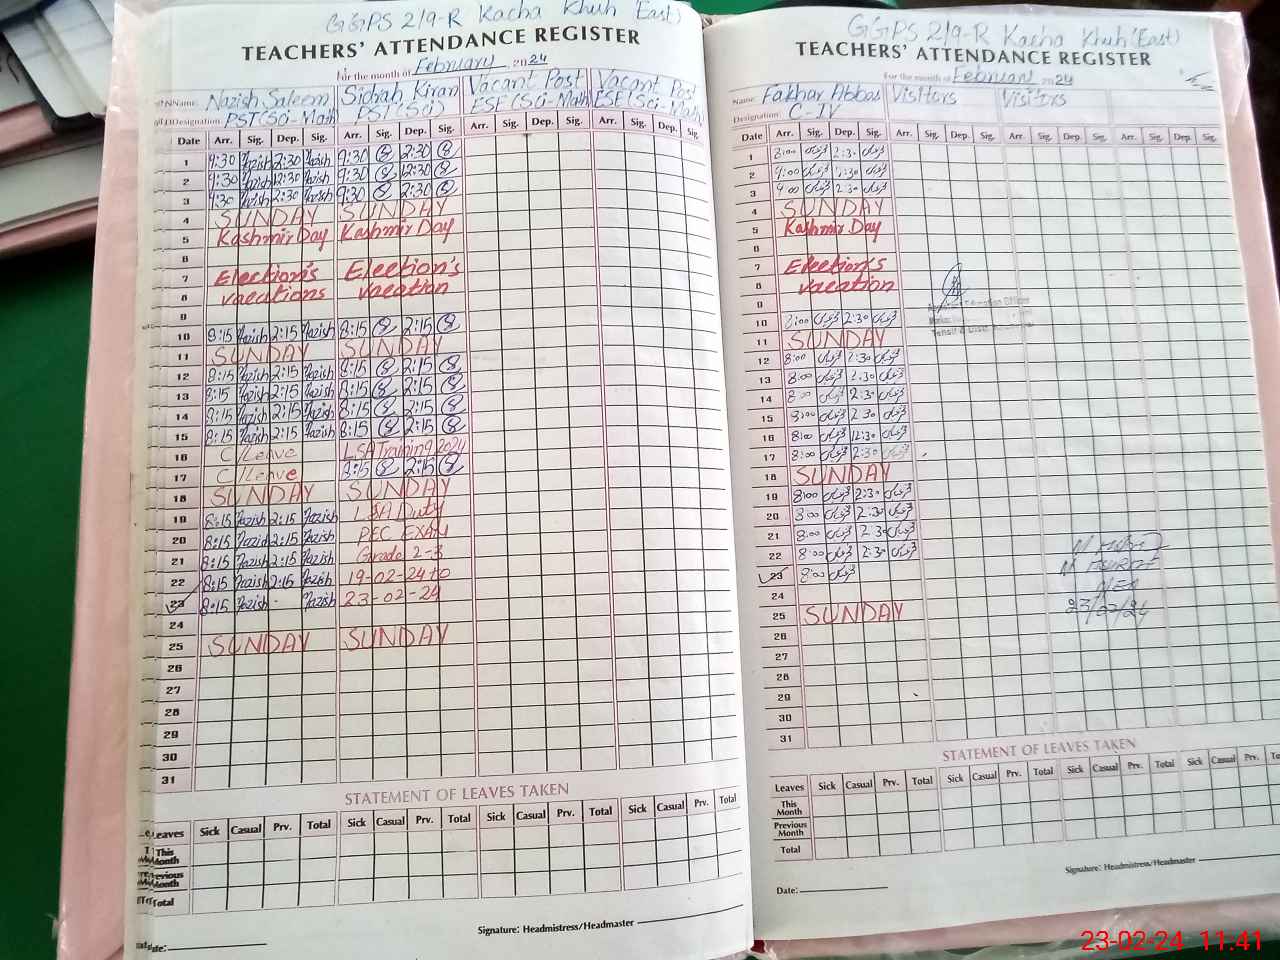 GGPS 2/9-R Kacha Khuh (East)
TEACHERS' ATTENDANCE REGISTER
For the month of February 2024
Name: Nazish Saleem Sidrah Kiran Vacant Post Vacant Post
Designation: PST(Sci-Math) PST(Sci) ESE(Sci-Math) ESE(Sci-Math)
Date Arr. Sig. Dep. Sig. Arr. Sig. Dep. Sig. Arr. Sig. Dep. Sig. Arr. Sig. Dep. Sig.
1 9:30 Nazish 2:30 Nazish 9:30 2:30
2 9:30 Nazish 12:30 Nazish 9:30 12:30
3 9:30 Nazish 2:30 Nazish 9:30 2:30
4 SUNDAY SUNDAY
5 Kashmir Day Kashmir Day
6
7 Election's Election's
8 vacations vacation
9
10 8:15 Nazish 2:15 Nazish 8:15 2:15
11 SUNDAY SUNDAY
12 8:15 Nazish 2:15 Nazish 8:15 2:15
13 8:15 Nazish 2:15 Nazish 8:15 2:15
14 8:15 Nazish 2:15 Nazish 8:15 2:15
15 8:15 Nazish 2:15 Nazish 8:15 2:15
16 C/Leave LSA Training 2024
17 C/Leave 8:15 2:15
18 SUNDAY SUNDAY
19 8:15 Nazish 2:15 Nazish LSA Duty
20 8:15 Nazish 2:15 Nazish PEC EXAM
21 8:15 Nazish 2:15 Nazish Garade 2-3
22 8:15 Nazish 2:15 Nazish 19-02-24 to
23 8:15 Nazish - Nazish 23-02-24
24
25 SUNDAY SUNDAY
26
27
28
29
30
31
STATEMENT OF LEAVES TAKEN
Leaves Sick Casual Prv. Total Sick Casual Prv. Total Sick Casual Prv. Total Sick Casual Prv. Total
This Month
Previous Month
Total
Signature: Headmistress/Headmaster
Date:
GGPS 2/9-R Kacha Khuh (East)
TEACHERS' ATTENDANCE REGISTER
For the month of February 2024
Name: Fakhar Abbas Visitors Visitors
Designation: C-IV
Date Arr. Sig. Dep. Sig. Arr. Sig. Dep. Sig. Arr. Sig. Dep. Sig. Arr. Sig. Dep. Sig.
1 8:00 2:30
2 9:00 12:30
3 9:00 2:30
4 SUNDAY
5 Kashmir Day
6
7 Election's
8 vacation
9
10 8:00 2:30
11 SUNDAY
12 8:00 2:30
13 8:00 2:30
14 8:00 2:30
15 8:00 2:30
16 8:00 12:30
17 8:00 2:30
18 SUNDAY
19 8:00 2:30
20 8:00 2:30
21 8:00 2:30
22 8:00 2:30
23 8:00
24
25 SUNDAY
26
27
28
29
30
31
AEO
23/02/24
STATEMENT OF LEAVES TAKEN
Leaves Sick Casual Prv. Total Sick Casual Prv. Total Sick Casual Prv. Total Sick Casual Prv. Total
This Month
Previous Month
Total
Signature: Headmistress/Headmaster
Date:
23-02-24 11:41